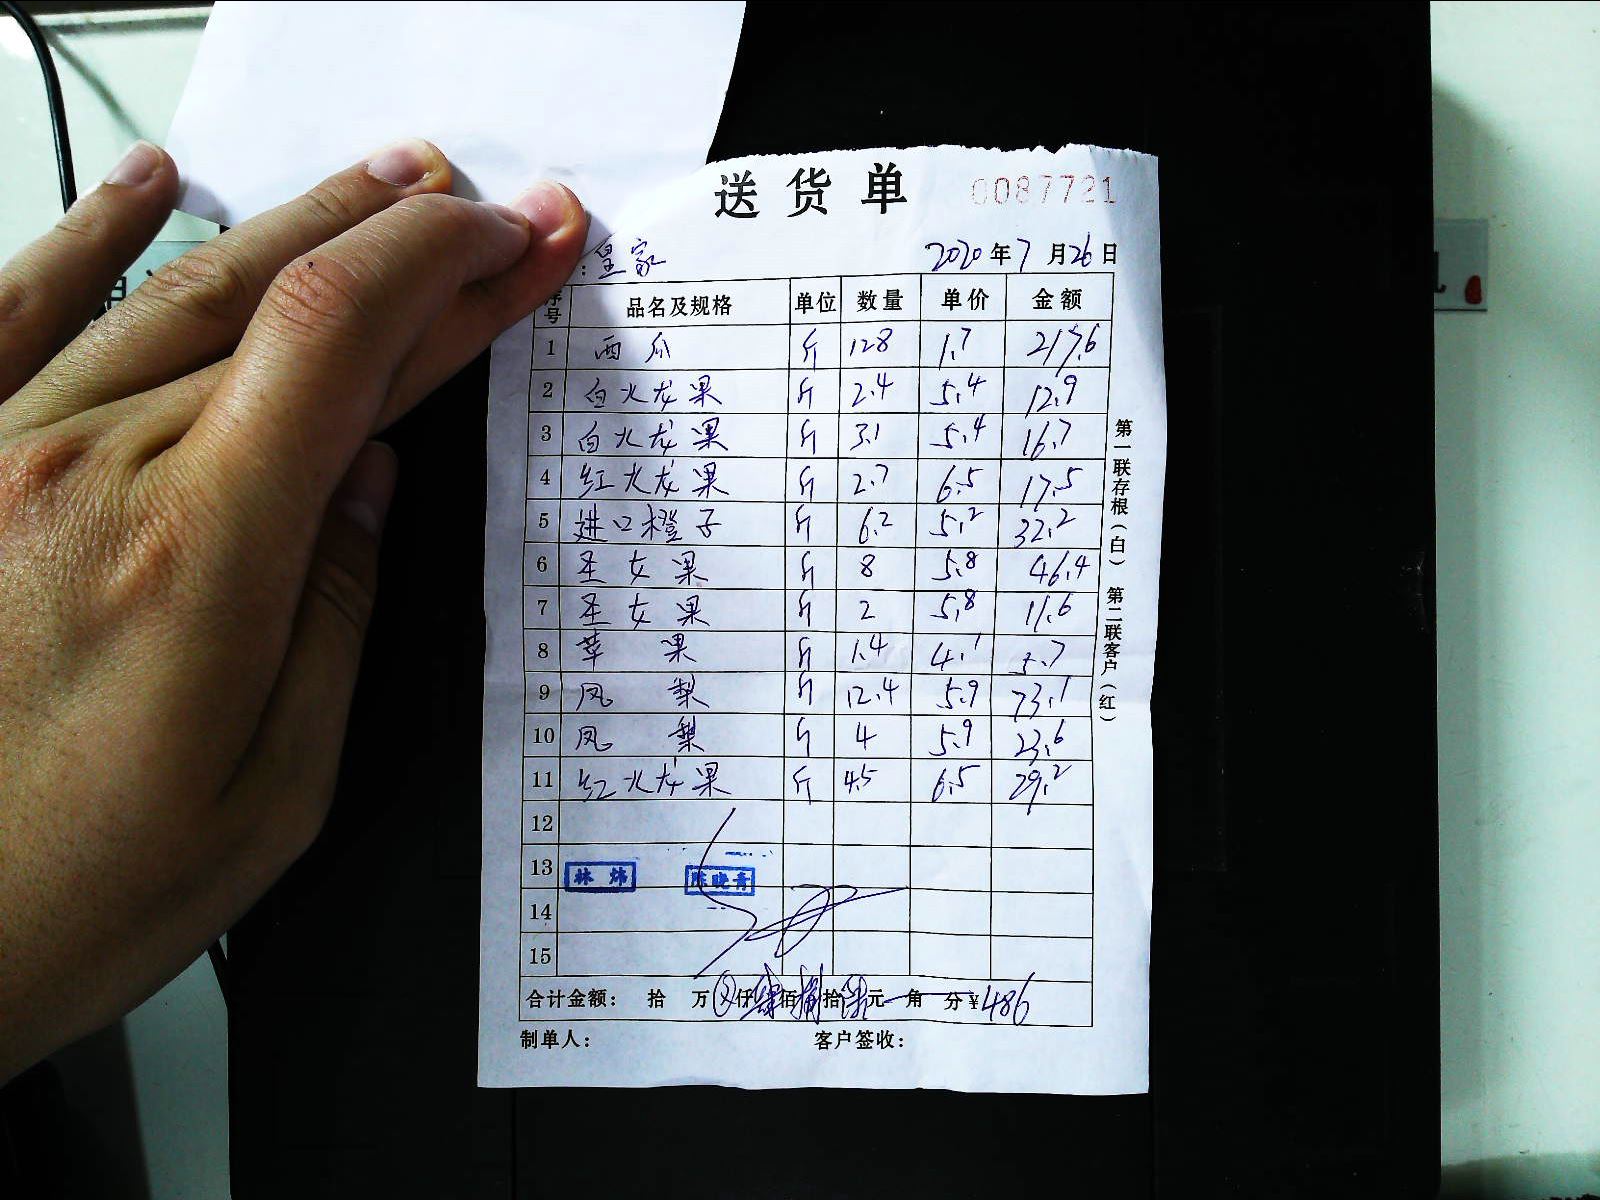 送货单 0087721
:皇家 2020年7月26日
序号 品名及规格 单位 数量 单价 金额
1 西瓜 斤 128 1.7 217.6
2 白火龙果 斤 2.4 5.4 12.9
3 白火龙果 斤 3.1 5.4 16.7
4 红火龙果 斤 2.7 6.5 17.5
5 进口橙子 斤 6.2 5.2 32.2
6 圣女果 斤 8 5.8 46.4
7 圣女果 斤 2 5.8 11.6
8 苹果 斤 1.4 4.1 5.7
9 凤梨 斤 12.4 5.9 73.1
10 凤梨 斤 4 5.9 23.6
11 红火龙果 斤 4.5 6.5 29.2
12
13 林炜 陈晓青
14
15
合计金额: 拾 万 仟 肆佰 捌拾 陆元 角 分 ¥486
制单人: 客户签收:
第一联存根(白) 第二联客户(红)